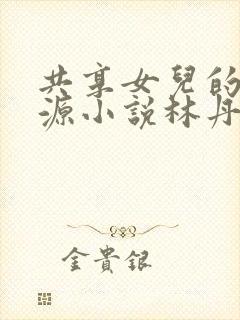 共享女兒的
源小說林丹
金貴銀